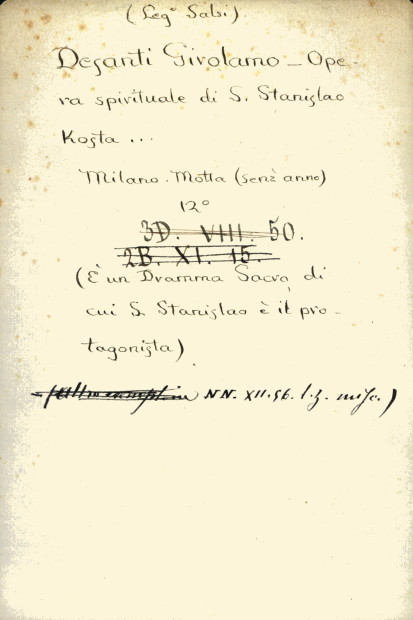 (Leg° Salsi)
Desanti Girolamo - Ope-
ra spirituale di S. Stanislao
Kosta ...
Milano. Motta (senz'anno)
12°
3D. VIII. 50.
2B. XI. 15.
(È un Dramma Sacro, di
cui S. Stanislao è il pro-
tagonista)
NN. XII. 56. misc.)